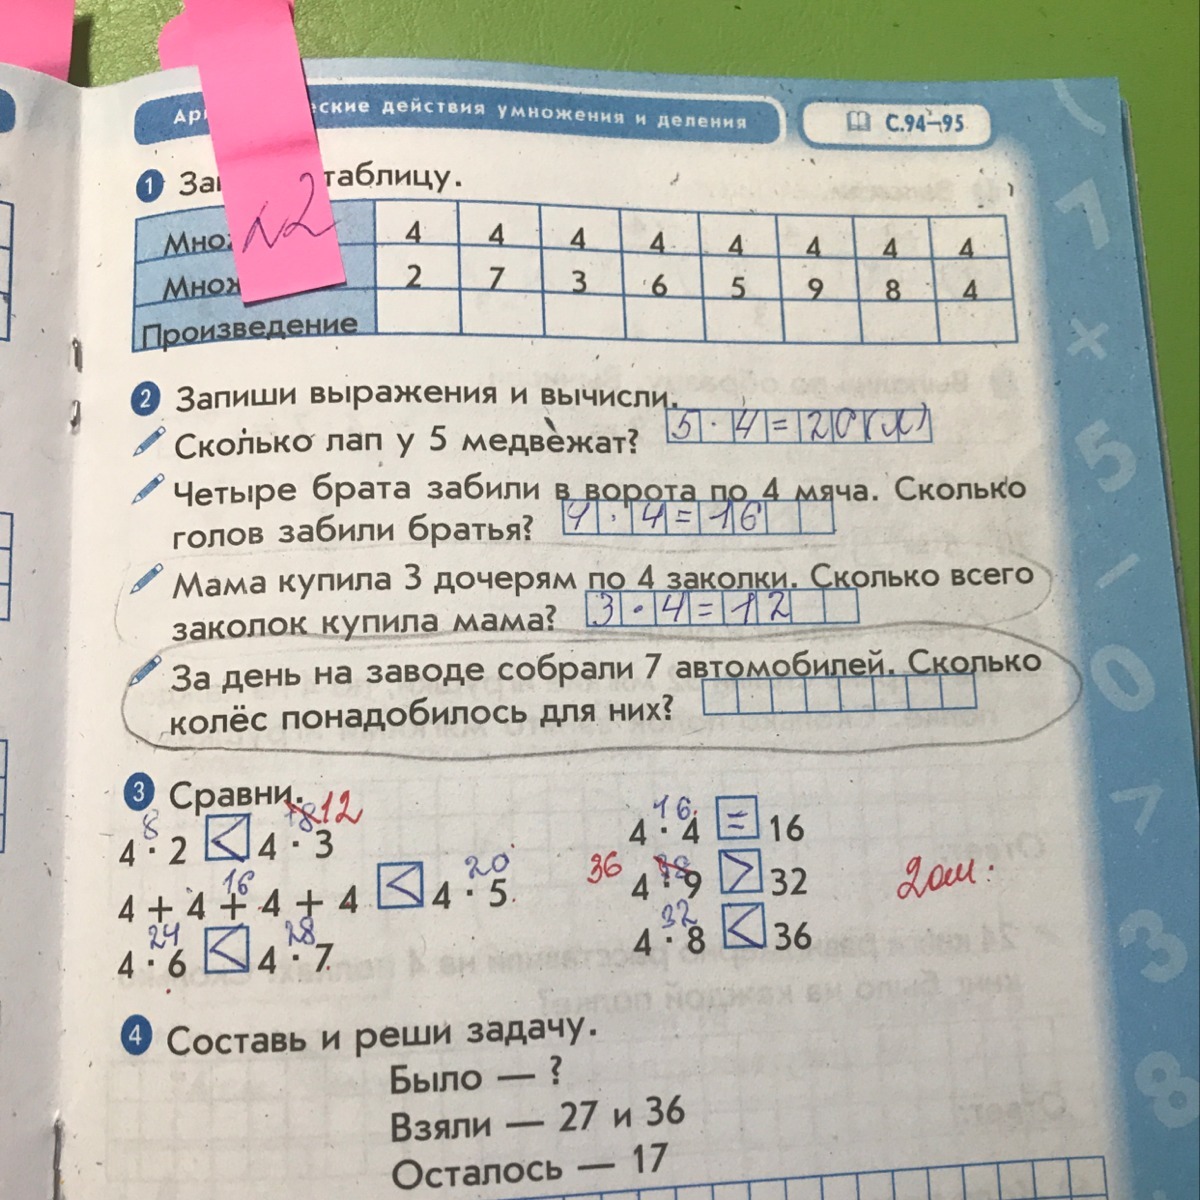 ские действия умножения и деления
С.94–95
1 таблицу.
№2
4 4 4 4 4 4 4 4
2 7 3 6 5 9 8 4
Произведение
2 Запиши выражения и вычисли.
Сколько лап у 5 медвежат? 5 · 4 = 20 (л)
Четыре брата забили в ворота по 4 мяча. Сколько
голов забили братья? 4 · 4 = 16
Мама купила 3 дочерям по 4 заколки. Сколько всего
заколок купила мама? 3 · 4 = 12
За день на заводе собрали 7 автомобилей. Сколько
колёс понадобилось для них?
3 Сравни.
8 12 16
4 · 2 < 4 · 3 4 · 4 = 16
16 20 36
4 + 4 + 4 + 4 < 4 · 5 4 · 9 > 32 2 ош.
24 28 32
4 · 6 < 4 · 7 4 · 8 < 36
4 Составь и реши задачу.
Было — ?
Взяли — 27 и 36
Осталось — 17